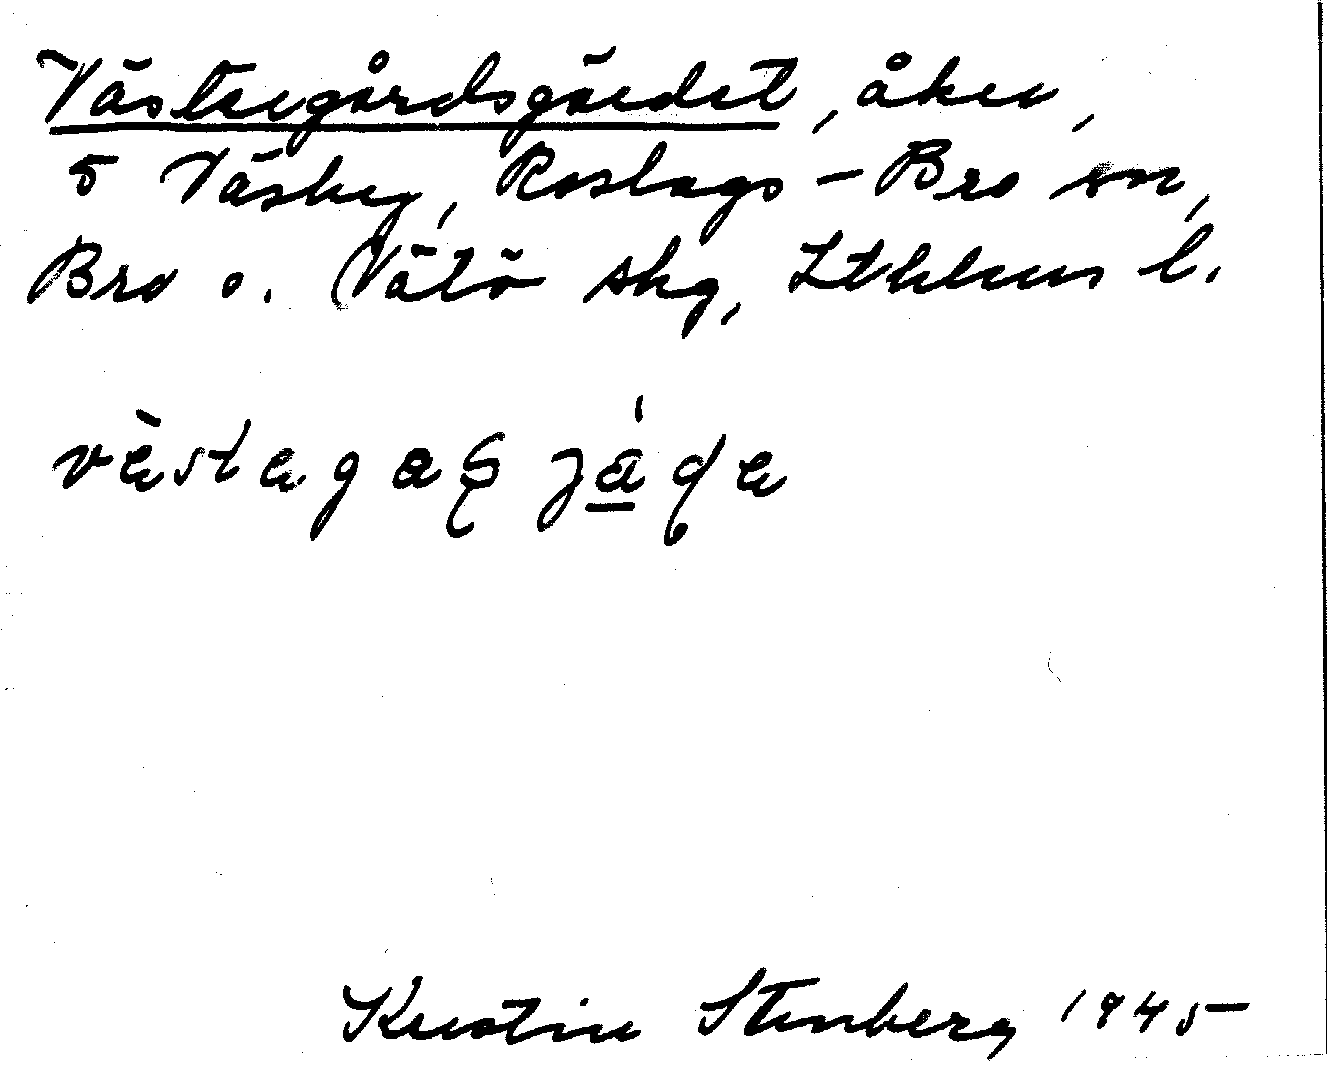 Västergårdsgärdet, åker,
5 Väsby, Roslags-Bro sn,
Bro o. Vätö skg, Sthlms l.
Kerstin Stenberg 1945